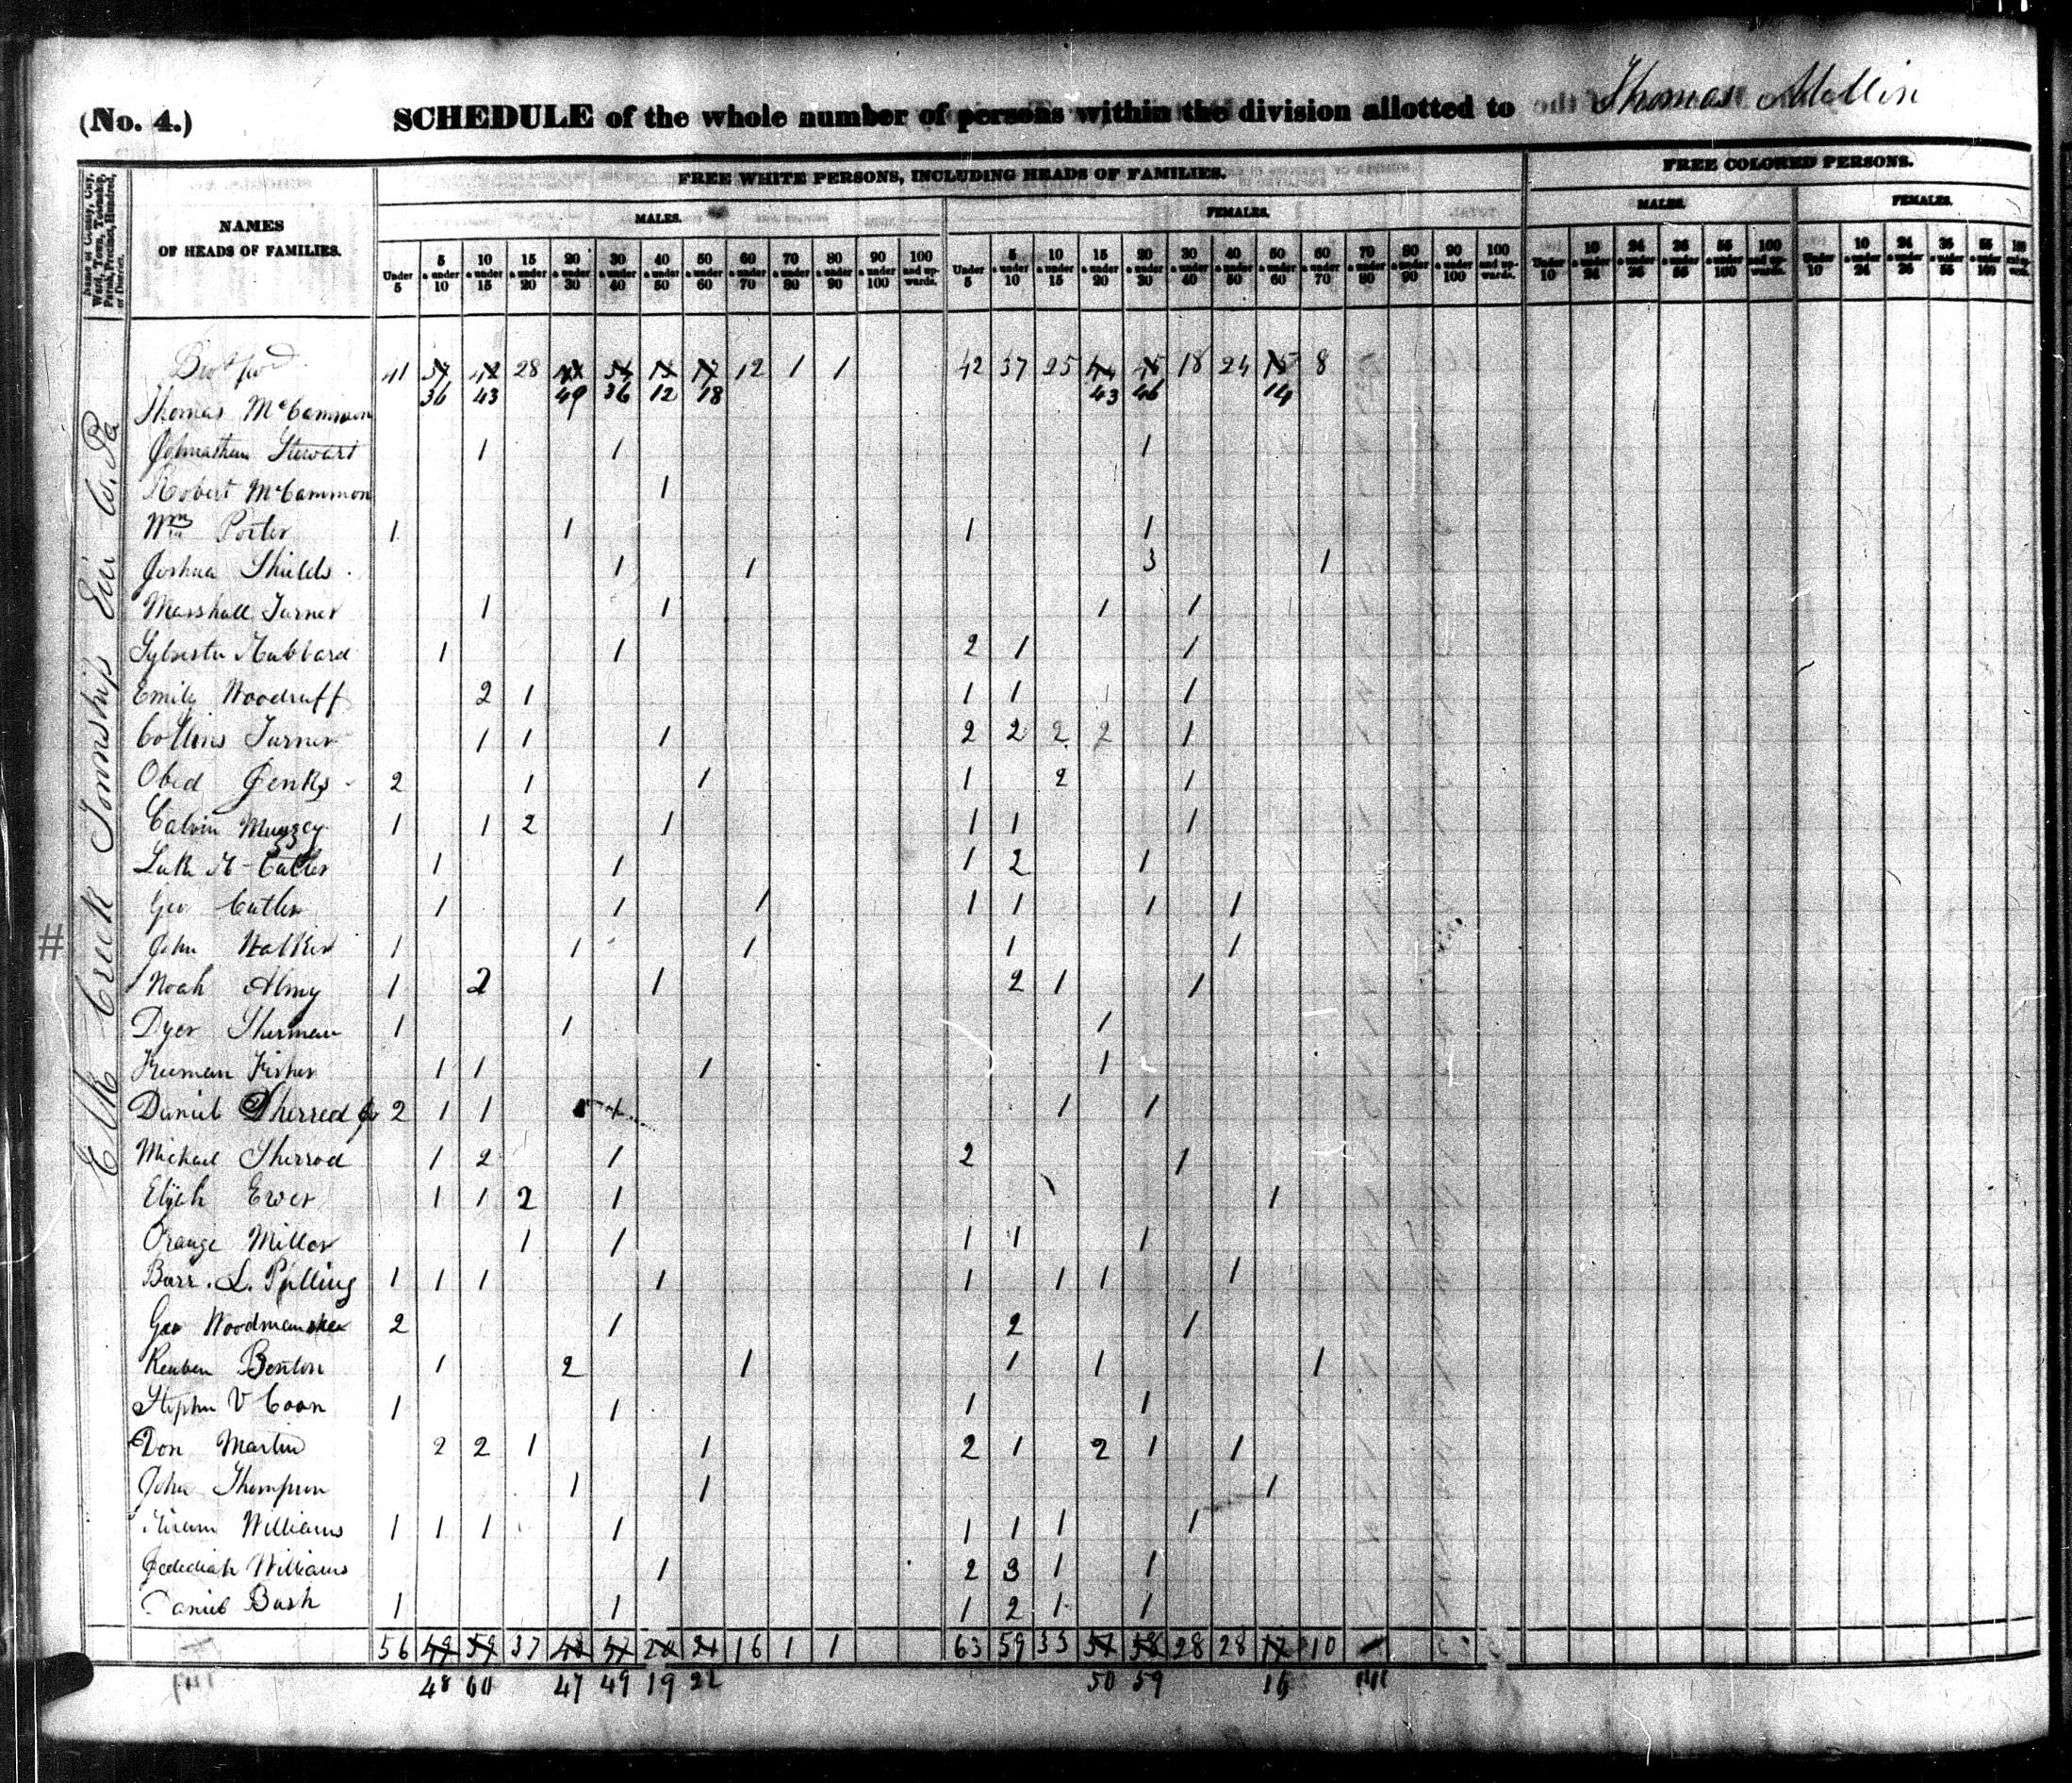 (No. 4.) SCHEDULE of the whole number of persons within the division allotted to Thomas Mellin
Name of County, City, Ward, Town, Township, Parish, Precinct, Hundred, or District.
NAMES
OF HEADS OF FAMILIES.
FREE WHITE PERSONS, INCLUDING HEADS OF FAMILIES.
FREE COLORED PERSONS.
MALES. FEMALES. MALES. FEMALES.
Under 5 | 5 & under 10 | 10 & under 15 | 15 & under 20 | 20 & under 30 | 30 & under 40 | 40 & under 50 | 50 & under 60 | 60 & under 70 | 70 & under 80 | 80 & under 90 | 90 & under 100 | 100 and upwards.
Under 5 | 5 & under 10 | 10 & under 15 | 15 & under 20 | 20 & under 30 | 30 & under 40 | 40 & under 50 | 50 & under 60 | 60 & under 70 | 70 & under 80 | 80 & under 90 | 90 & under 100 | 100 and upwards.
Under 10 | 10 & under 24 | 24 & under 36 | 36 & under 55 | 55 & under 100 | 100 and upwards.
Under 10 | 10 & under 24 | 24 & under 36 | 36 & under 55 | 55 & under 100 | 100 and upwards.
Elk Creek Township Erie Co. Pa
41 28 12 1 1 42 37 25 18 24 8
36 43 49 36 12 18 43 46 14
Thomas McCammon
Johnathan Stewart 1 1 1
Robert McCammon 1
Wm Porter 1 1 1 1
Joshua Shields 1 1 3 1
Marshall Turner 1 1 1 1
Sylvester Hubbard 1 1 2 1 1
Emily Woodruff 2 1 1 1 1 1
Collins Turner 1 1 1 2 2 2 2 1
Obed Jenks 2 1 1 1 2 1
Calvin Muzzey 1 1 2 1 1 1 1
Luke H Cutler 1 1 1 2 1
Geo Cutler 1 1 1 1 1 1 1
# John Walker 1 1 1 1 1
Noah Almy 1 2 1 2 1 1
Dyer Sherman 1 1 1
Freeman Fisher 1 1 1 1
Daniel Sherred Jr 2 1 1 1 1 1
Michael Sherrod 1 2 1 2 1
Elijah Ewer 1 1 2 1 1
Orange Miller 1 1 1 1 1
Barr. L. Pulling 1 1 1 1 1 1 1 1
Geo Woodmanshee 2 1 2 1
Reuben Benton 1 2 1 1 1 1
Stephen V Coon 1 1 1 1
Don Martin 2 2 1 1 2 1 2 1 1
John Thompson 1 1 1
Hiram Williams 1 1 1 1 1 1 1 1
Jedediah Williams 1 2 3 1 1
Daniel Bush 1 1 1 2 1 1
56 49 59 37 16 1 1 63 59 35 28 28 17 10
48 60 47 49 19 22 50 59 16